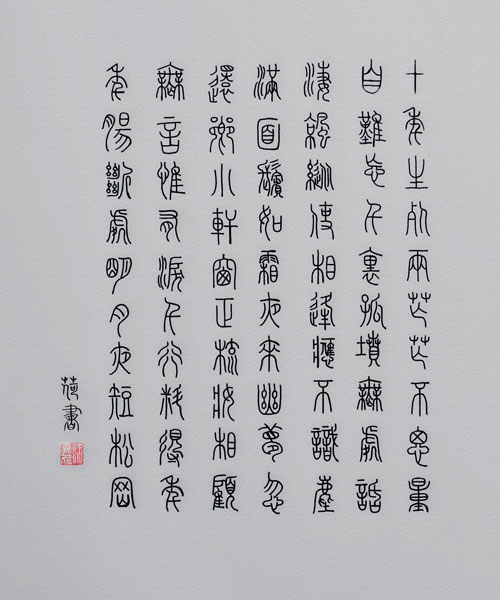 十年生死兩芒芒不思量
自難忘千裏孤墳無處話
淒涼縱使相逢應不識塵
滿面鬢如霜夜來幽夢忽
還鄉小軒窗正梳妝相顧
無言惟有淚千行料得年
年腸斷處明月夜短松岡
書